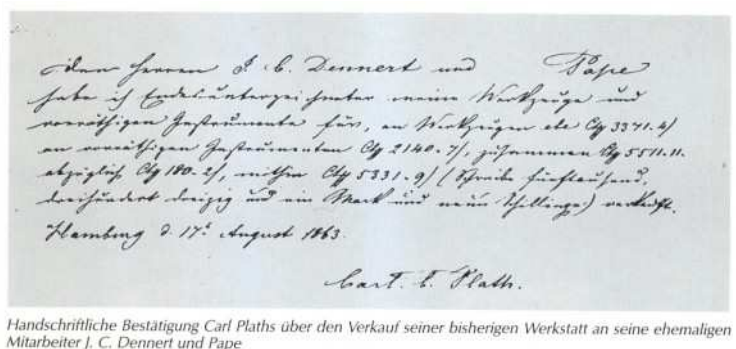 Den Herren J. C. Dennert und Pape
habe ich Endesunterzeichneter meine Werkzeuge und
vorräthigen Instrumente für, an Werkzeugen 3371.4/
an vorräthigen Instrumenten 2140.7/, zusammen 5511.11.
abzüglich 180.2/, mithin 5331.9/ (Schreibe fünftausend,
dreihundert dreizig und ein Mark und neun Schillinge) verkauft.
Hamburg d. 17t August 1863.
Carl C. Plath.
Handschriftliche Bestätigung Carl Plaths über den Verkauf seiner bisherigen Werkstatt an seine ehemaligen
Mitarbeiter J. C. Dennert und Pape